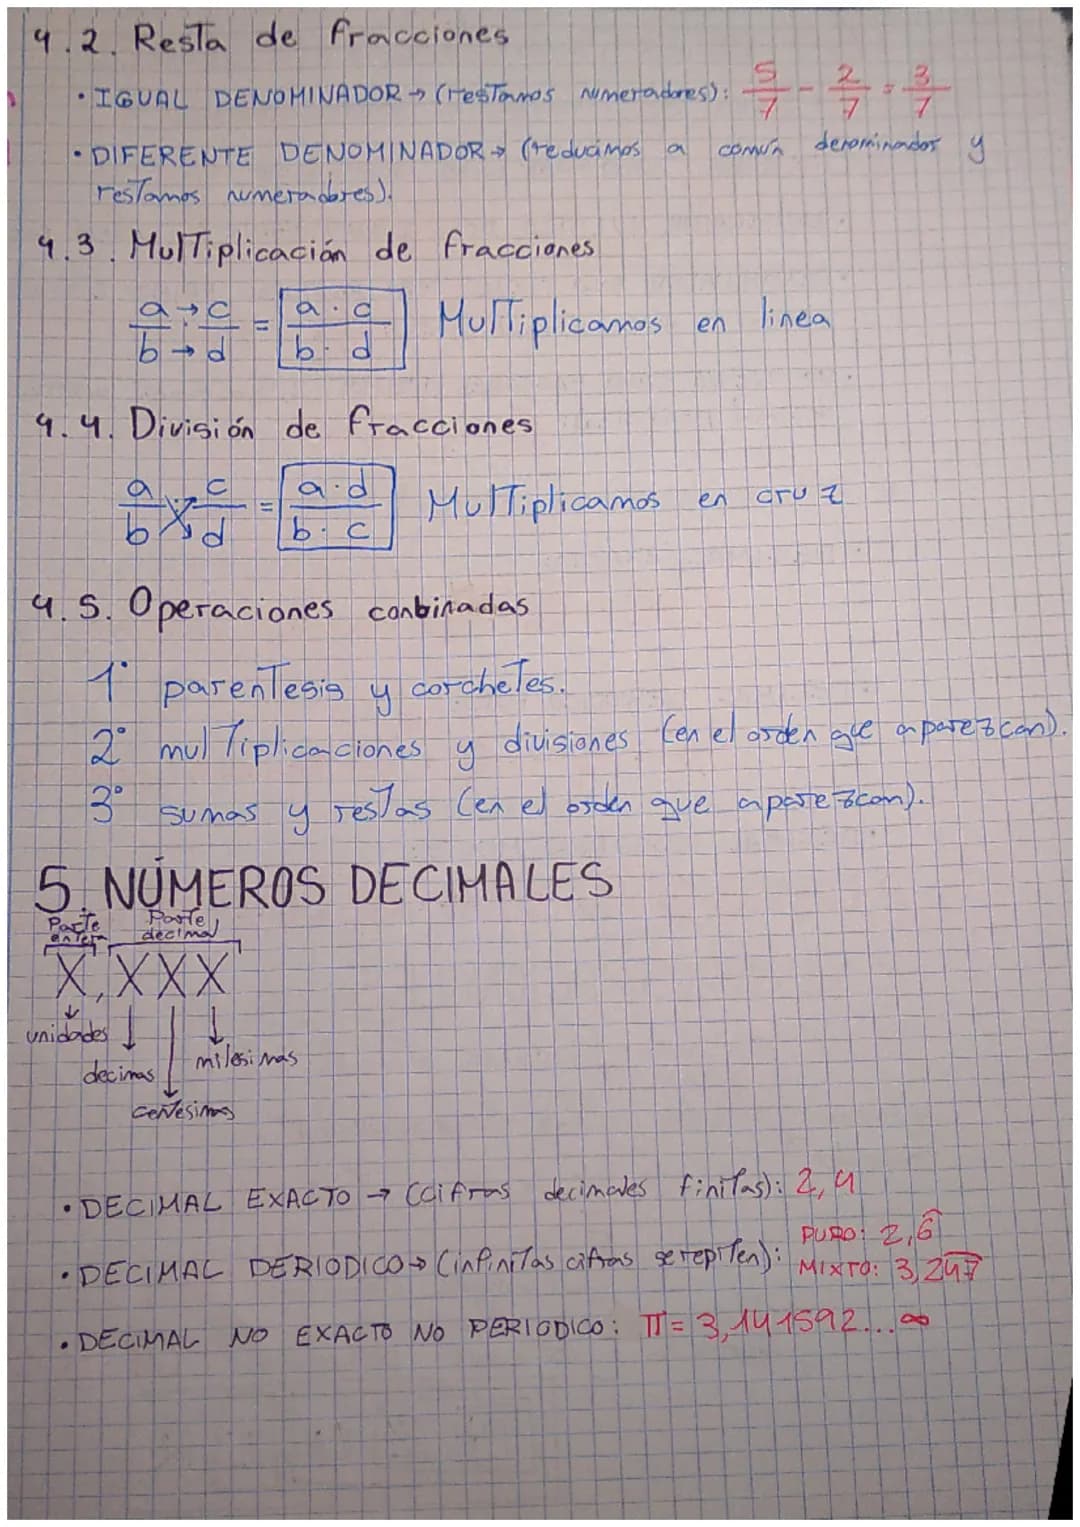 4.2. Resta de fracciones
• IGUAL DENOMINADOR → (restamos numeradores): 5/7 - 2/7 = 3/7
• DIFERENTE DENOMINADOR → (reducimos a común denominador y
restamos numeradores).
4.3. Multiplicación de fracciones
a/b · c/d = a · c / b · d Multiplicamos en linea
4.4. División de fracciones
a/b : c/d = a · d / b · c Multiplicamos en cruz
4.5. Operaciones conbinadas
1° parentesis y corchetes.
2° multiplicaciones y divisiones (en el orden que aparezcan).
3° sumas y restas (en el orden que aparezcan).
5. NÚMEROS DECIMALES
Parte entera Parte decimal
X,XXX
unidades
milesimas
decimas
centesimas
• DECIMAL EXACTO → (cifras decimales finitas): 2,4
• DECIMAL PERIODICO → (infinitas cifras se repiten): PURO: 2,6̂
MIXTO: 3,24̅7̅
• DECIMAL NO EXACTO NO PERIODICO: π = 3,141592... ∞